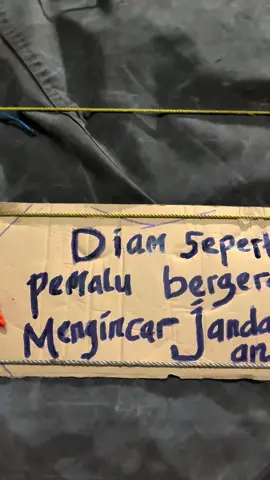 Diam sepert
pemalu berger
Mengincar janda
an